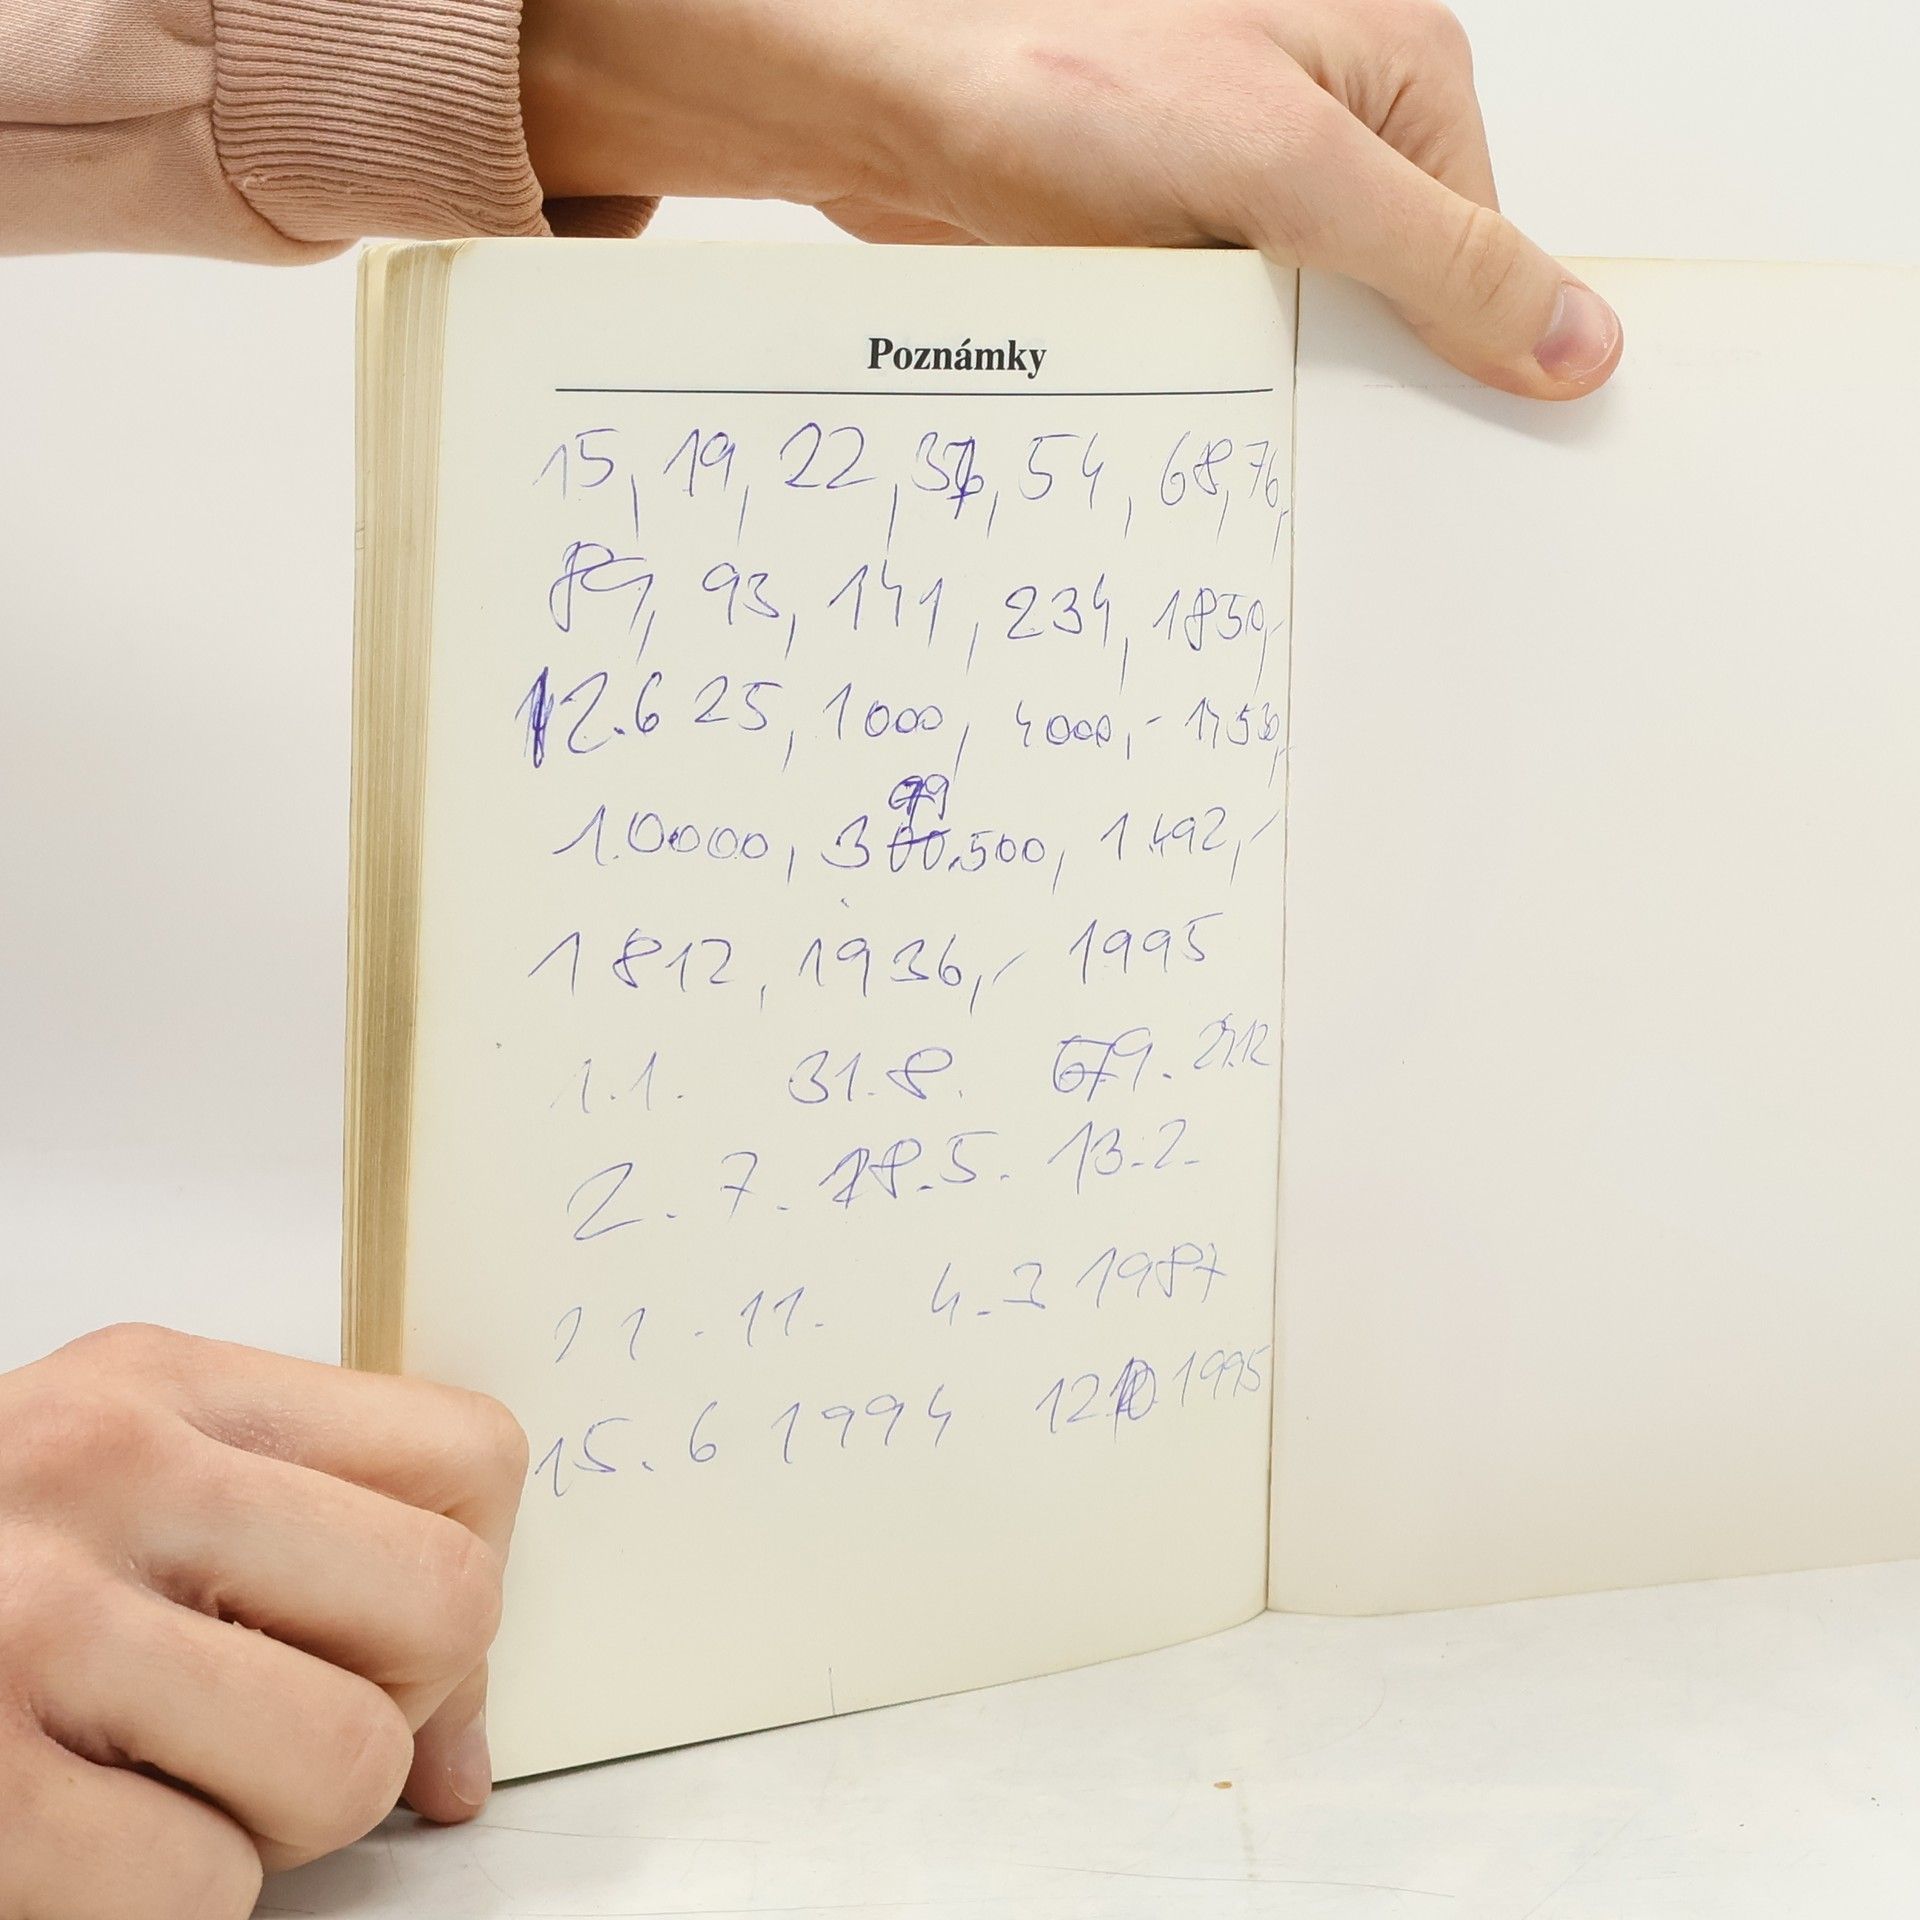 Poznámky
15, 19, 22, 36, 54, 68, 76,-
89, 93, 141, 234, 1850,-
12.625, 1000, 4000,- 1450,-
1.0000, 399.500, 1.492,-
1812, 1936,- 1995
1.1. 31.8. 6.9. 24.12
2.7. 18.5. 13.2.
11.11. 4.3 1987
15.6 1994 12 10 1995